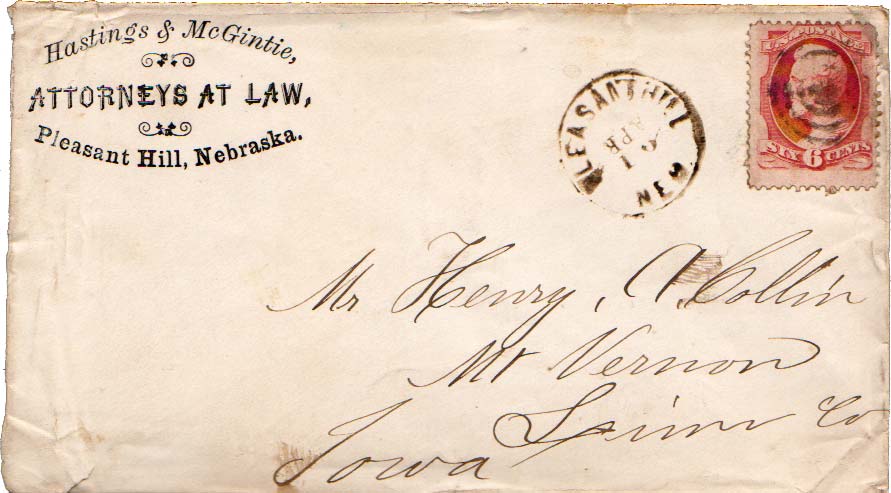 Hastings & McGintie,
ATTORNEYS AT LAW,
Pleasant Hill, Nebraska.
PLEASANT HILL
APR
NEB
U.S. POSTAGE
SIX 6 CENTS
Mr Henry, A. Collin
Mt Vernon
Linn Co
Iowa